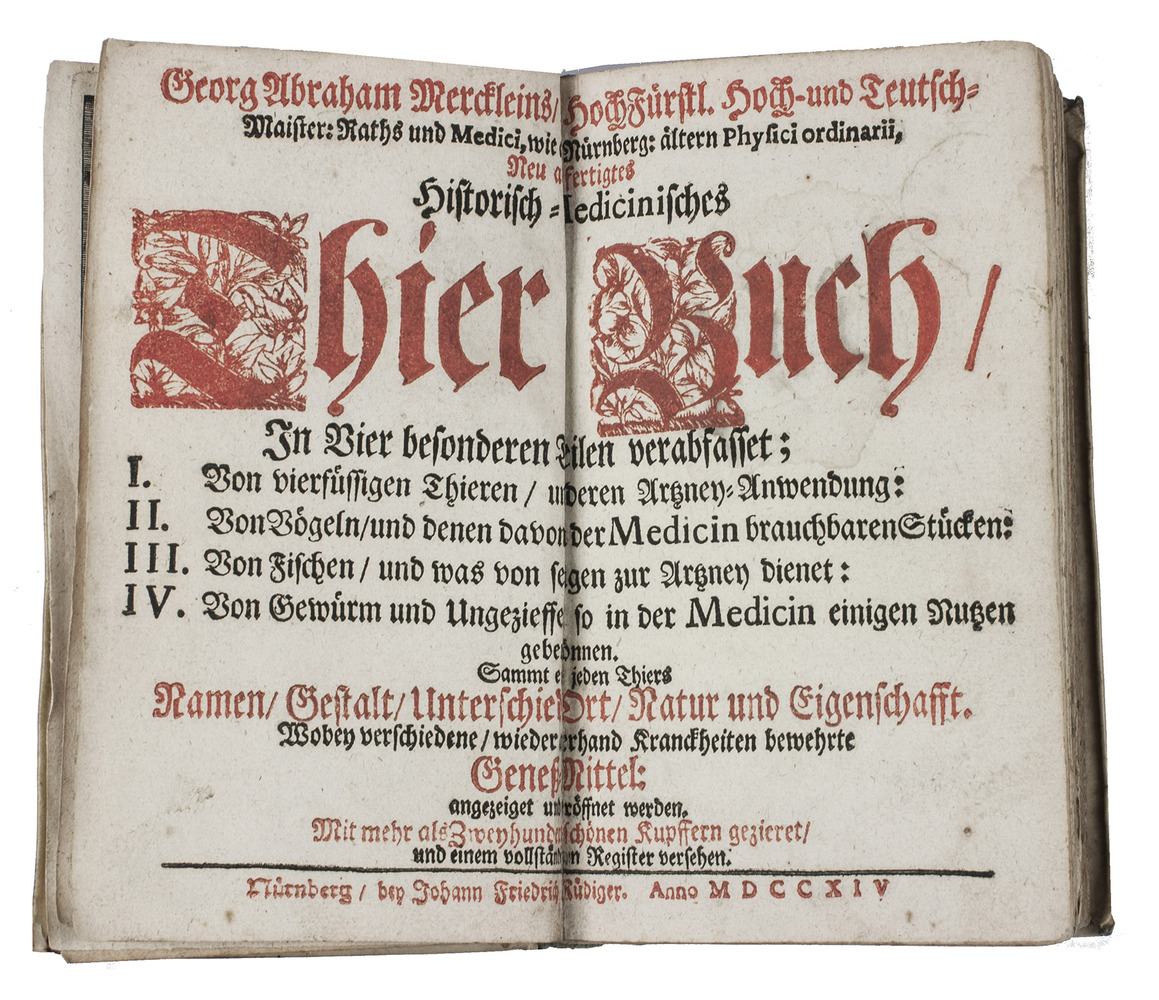 Georg Abraham Merckleins/ HochFürstl. Hoch-und Teutsch-
Maister: Raths und Medici, wie Nürnberg: ältern Physici ordinarii,
Neu fertigtes
Historisch-edicinisches
Thier Buch/
In Vier besonderen eilen verabfasset;
I. Von vierfüssigen Thieren/ deren Artzney-Anwendung:
II. Von Vögeln/und denen davon der Medicin brauchbaren Stücken:
III. Von Fischen/ und was von gen zur Artzney dienet:
IV. Von Gewürm und Ungezieffe so in der Medicin einigen Nutzen
nnen.
Sammt jeden Thiers
Namen/ Gestalt/ Unterschie Ort/ Natur und Eigenschafft.
Wobey verschiedene/ wieder erhand Kranckheiten bewehrte
Geneß Mittel:
angezeiget un röffnet werden.
Mit mehr als Zweyhund schönen Kupffern gezieret/
und einem vollstän n Register versehen.
Nürnberg/ bey Johann Friedrich Rüdiger. Anno MDCCXIV